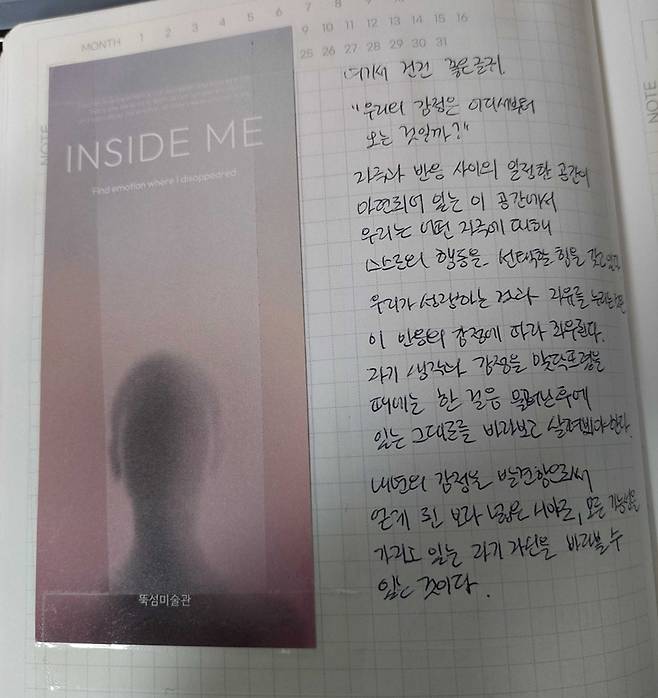 MONTH 1 2 3 4 5 6 7 8 9
9 10 11 12 13 14 15 16
25 26 27 28 29 30 31
NOTE
NOTE
INSIDE ME
Find emotion where I disappeared
뚝섬미술관
여기서 건진 좋은글귀.
"우리의 감정은 어디서부터
오는 것일까?"
자극과 반응 사이의 일정한 공간이
마련되어 있는 이 공간에서
우리는 어떤 자극에 대해
스스로의 행동을 선택할 힘을 갖고 있고
우리가 성장하는 것과 자유를 누리는
이 반응의 감정에 따라 좌우된다.
자기 생각과 감정을 맞닥뜨렸을
때에는 한 걸음 물러난후에
있는 그대로를 바라보고 살펴봐야 한다.
내면의 감정을 발견함으로써
얻게 된 보다 넓은 시야로, 모든 가능성을
가지고 있는 자기 자신을 바라볼 수
있는 것이다.